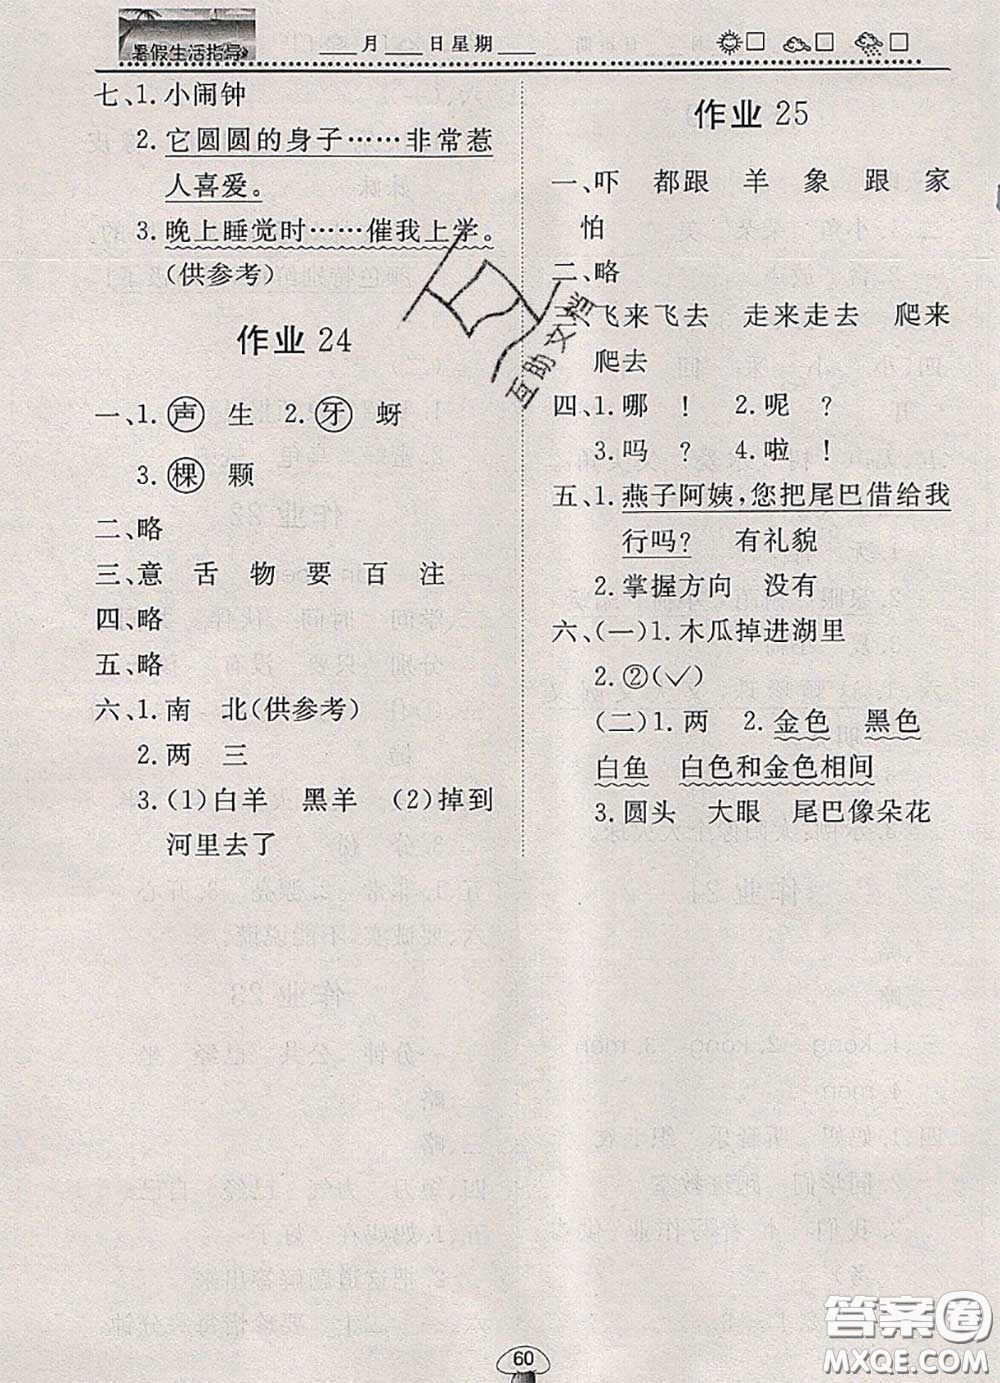 暑假生活指导
月 日星期
七、1.小闹钟
2.它圆圆的身子……非常惹
人喜爱。
3.晚上睡觉时……催我上学。
(供参考)
作业24
一、1.声 生 2.牙 蚜
3.棵 颗
二、略
三、意 舌 物 要 百 注
四、略
五、略
六、1.南 北(供参考)
2.两 三
3.(1)白羊 黑羊 (2)掉到
河里去了
作业25
一、吓 都跟 羊 象 跟 家
怕
二、略
三、飞来飞去 走来走去 爬来
爬去
四、1.哪 ! 2.呢 ?
3.吗 ? 4.啦 !
五、1.燕子阿姨,您把尾巴借给我
行吗? 有礼貌
2.掌握方向 没有
六、(一)1.木瓜掉进湖里
2.②(✓)
(二)1.两 2.金色 黑色
白鱼 白色和金色相间
3.圆头 大眼 尾巴像朵花
互助文档
60
答案圈
MXQE.COM